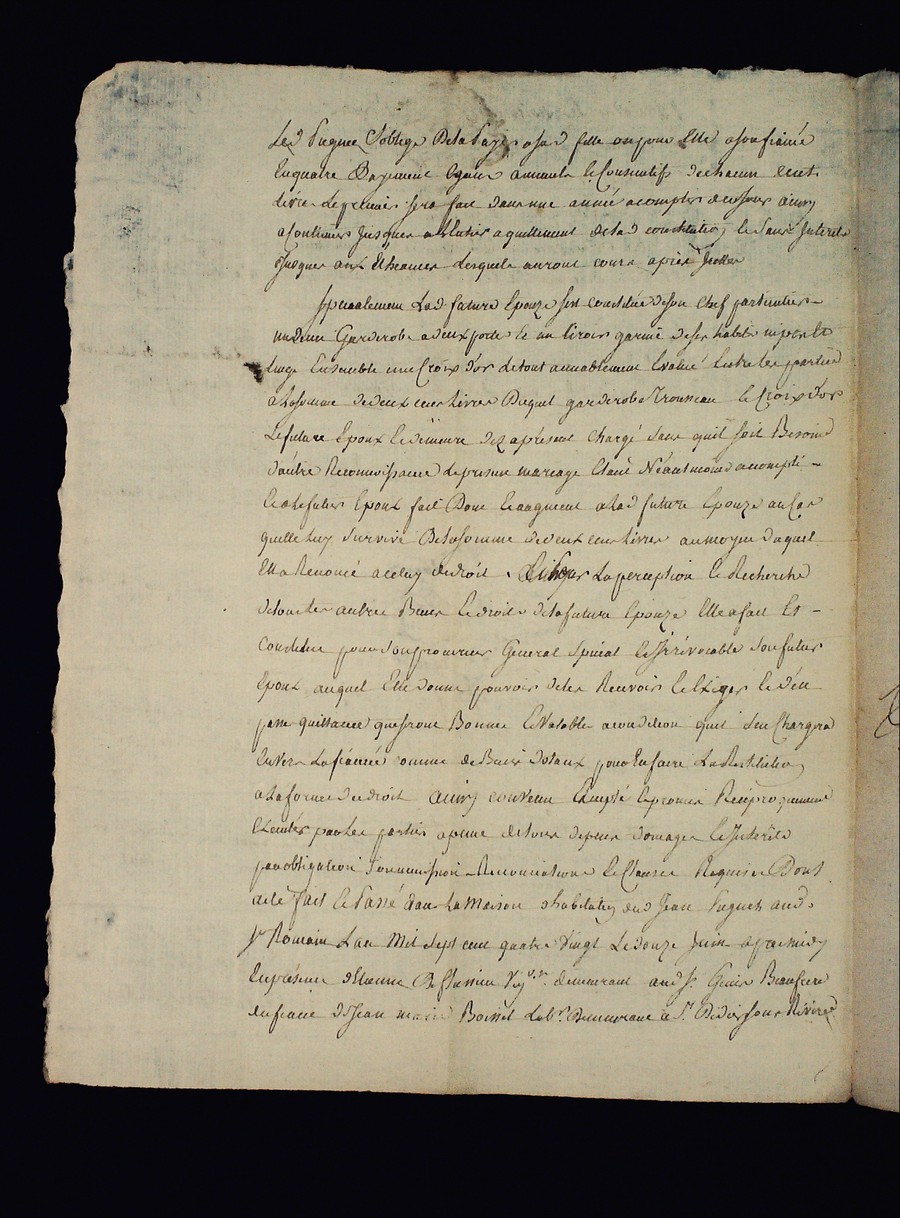 Led Puguet S'oblige De la Payer asad fille ou pour Elle a son fiancé
En quatre Payement Egaux annuels & Consecutifs de chacun cent
Livres Le premier sera fait dans une année a compter de ce jour ainsy
a Continuer Jusques a Entier aquittement de lad constitution & Sans Interets
Jusques aux Echeances Lesquels auront cours après Icelles
Specialement Lad future Epouze se constitue de son chef particulier
une Garderobe a deux porte & un tiroir garnie de ses habits nipes &
Linge Ensemble une Croix d'or le tout amiablement Evalué Entre Les parties
a La somme de deux cent Livres Duquel garderobe Trousseau & Croix d'or
Le future Epoux & demeure dez apresent Chargé sans quil soit Besoin
d'autre Reconnoissance le present mariage Etant Néantmoins accompli
Led Le futur Epoux fait Don & augment a lad future Epouze au Cas
quelle luy Survive De la somme de deux cent Livres au moyen duquel
Ella Renoncé a celuy de droit . Exiger La perception & Recherche
de tous les autres Biens & droits de la future Epouze Elle a fait Et
Constitue pour Son procureur General Spécial & Irrévocable Son futur
Epoux auquel Elle donne pouvoir de les Recevoir & Exiger & d'en
passer quittance que seront Bonnes & Valable a condition quil s'en Chargera
Envers La fiancée comme de Biens Dotaux pour En faire La Restitution
a La forme de droit ainsy convenu accepté & promis Réciproquement
Executer par Les parties a peine de tous depens domages & Interets
par obligation Soummission Renonciations & Clauses Requises Dont
acte Fait & Passé dans La Maison d'habitation dud Jean Puguet aud.
St Romain L'an Mil Sept cent quatre Vingt Le Douze Juin apres midy
En présence d'Etienne demeurant aud St Genis Beaufrere
du fiancé & Jean marie Boisset Labr. Demeurant a St Didier sous Riviere